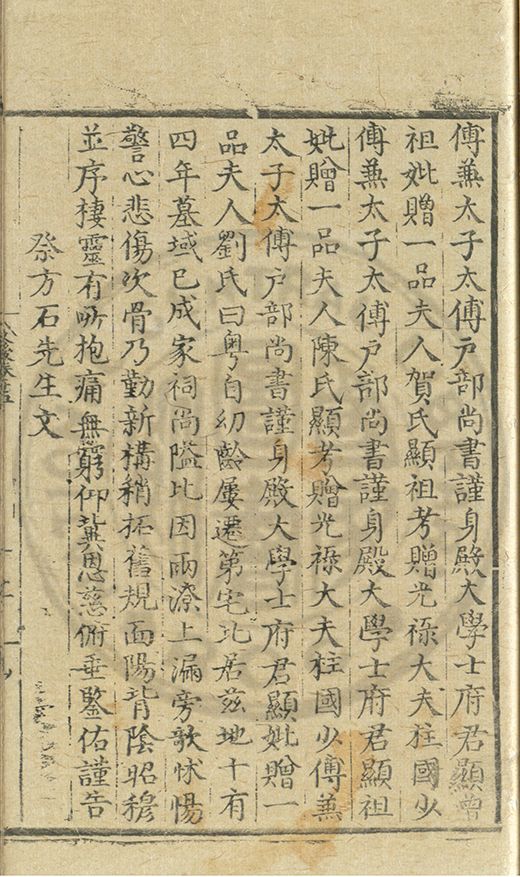 傅兼太子太傅戶部尚書謹身殿大學士府君顯曾
祖妣贈一品夫人賀氏顯祖考贈光祿大夫柱國少
傅兼太子太傅戶部尚書謹身殿大學士府君顯祖
妣贈一品夫人陳氏顯考贈光祿大夫柱國少傅兼
太子太傅戶部尚書謹身殿大學士府君顯妣贈一
品夫人劉氏曰粵自幼齡屢遷第宅北居茲地十有
四年墓域已成家祠尚隘比因雨潦上漏旁欹怵惕
警心悲傷次骨乃勤新構稍拓舊規面陽背陰昭穆
並序棲靈有所抱痛無窮仰冀恩慈俯垂鑒佑謹告
祭方石先生文